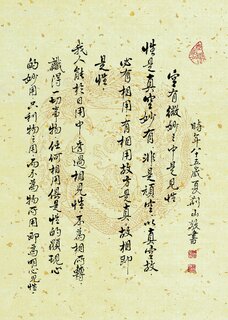 空有微妙主中是見性
性是真空妙有非是頑空以真空故
必有相用有相用故方是真故相即
是性
我人能於日用中透過相見性不為相所轉
識得一切事物任何相用俱是性的顯現心
的妙用只利物之用而不為物所用即為明心見性
時年八五歲夏劉山該書